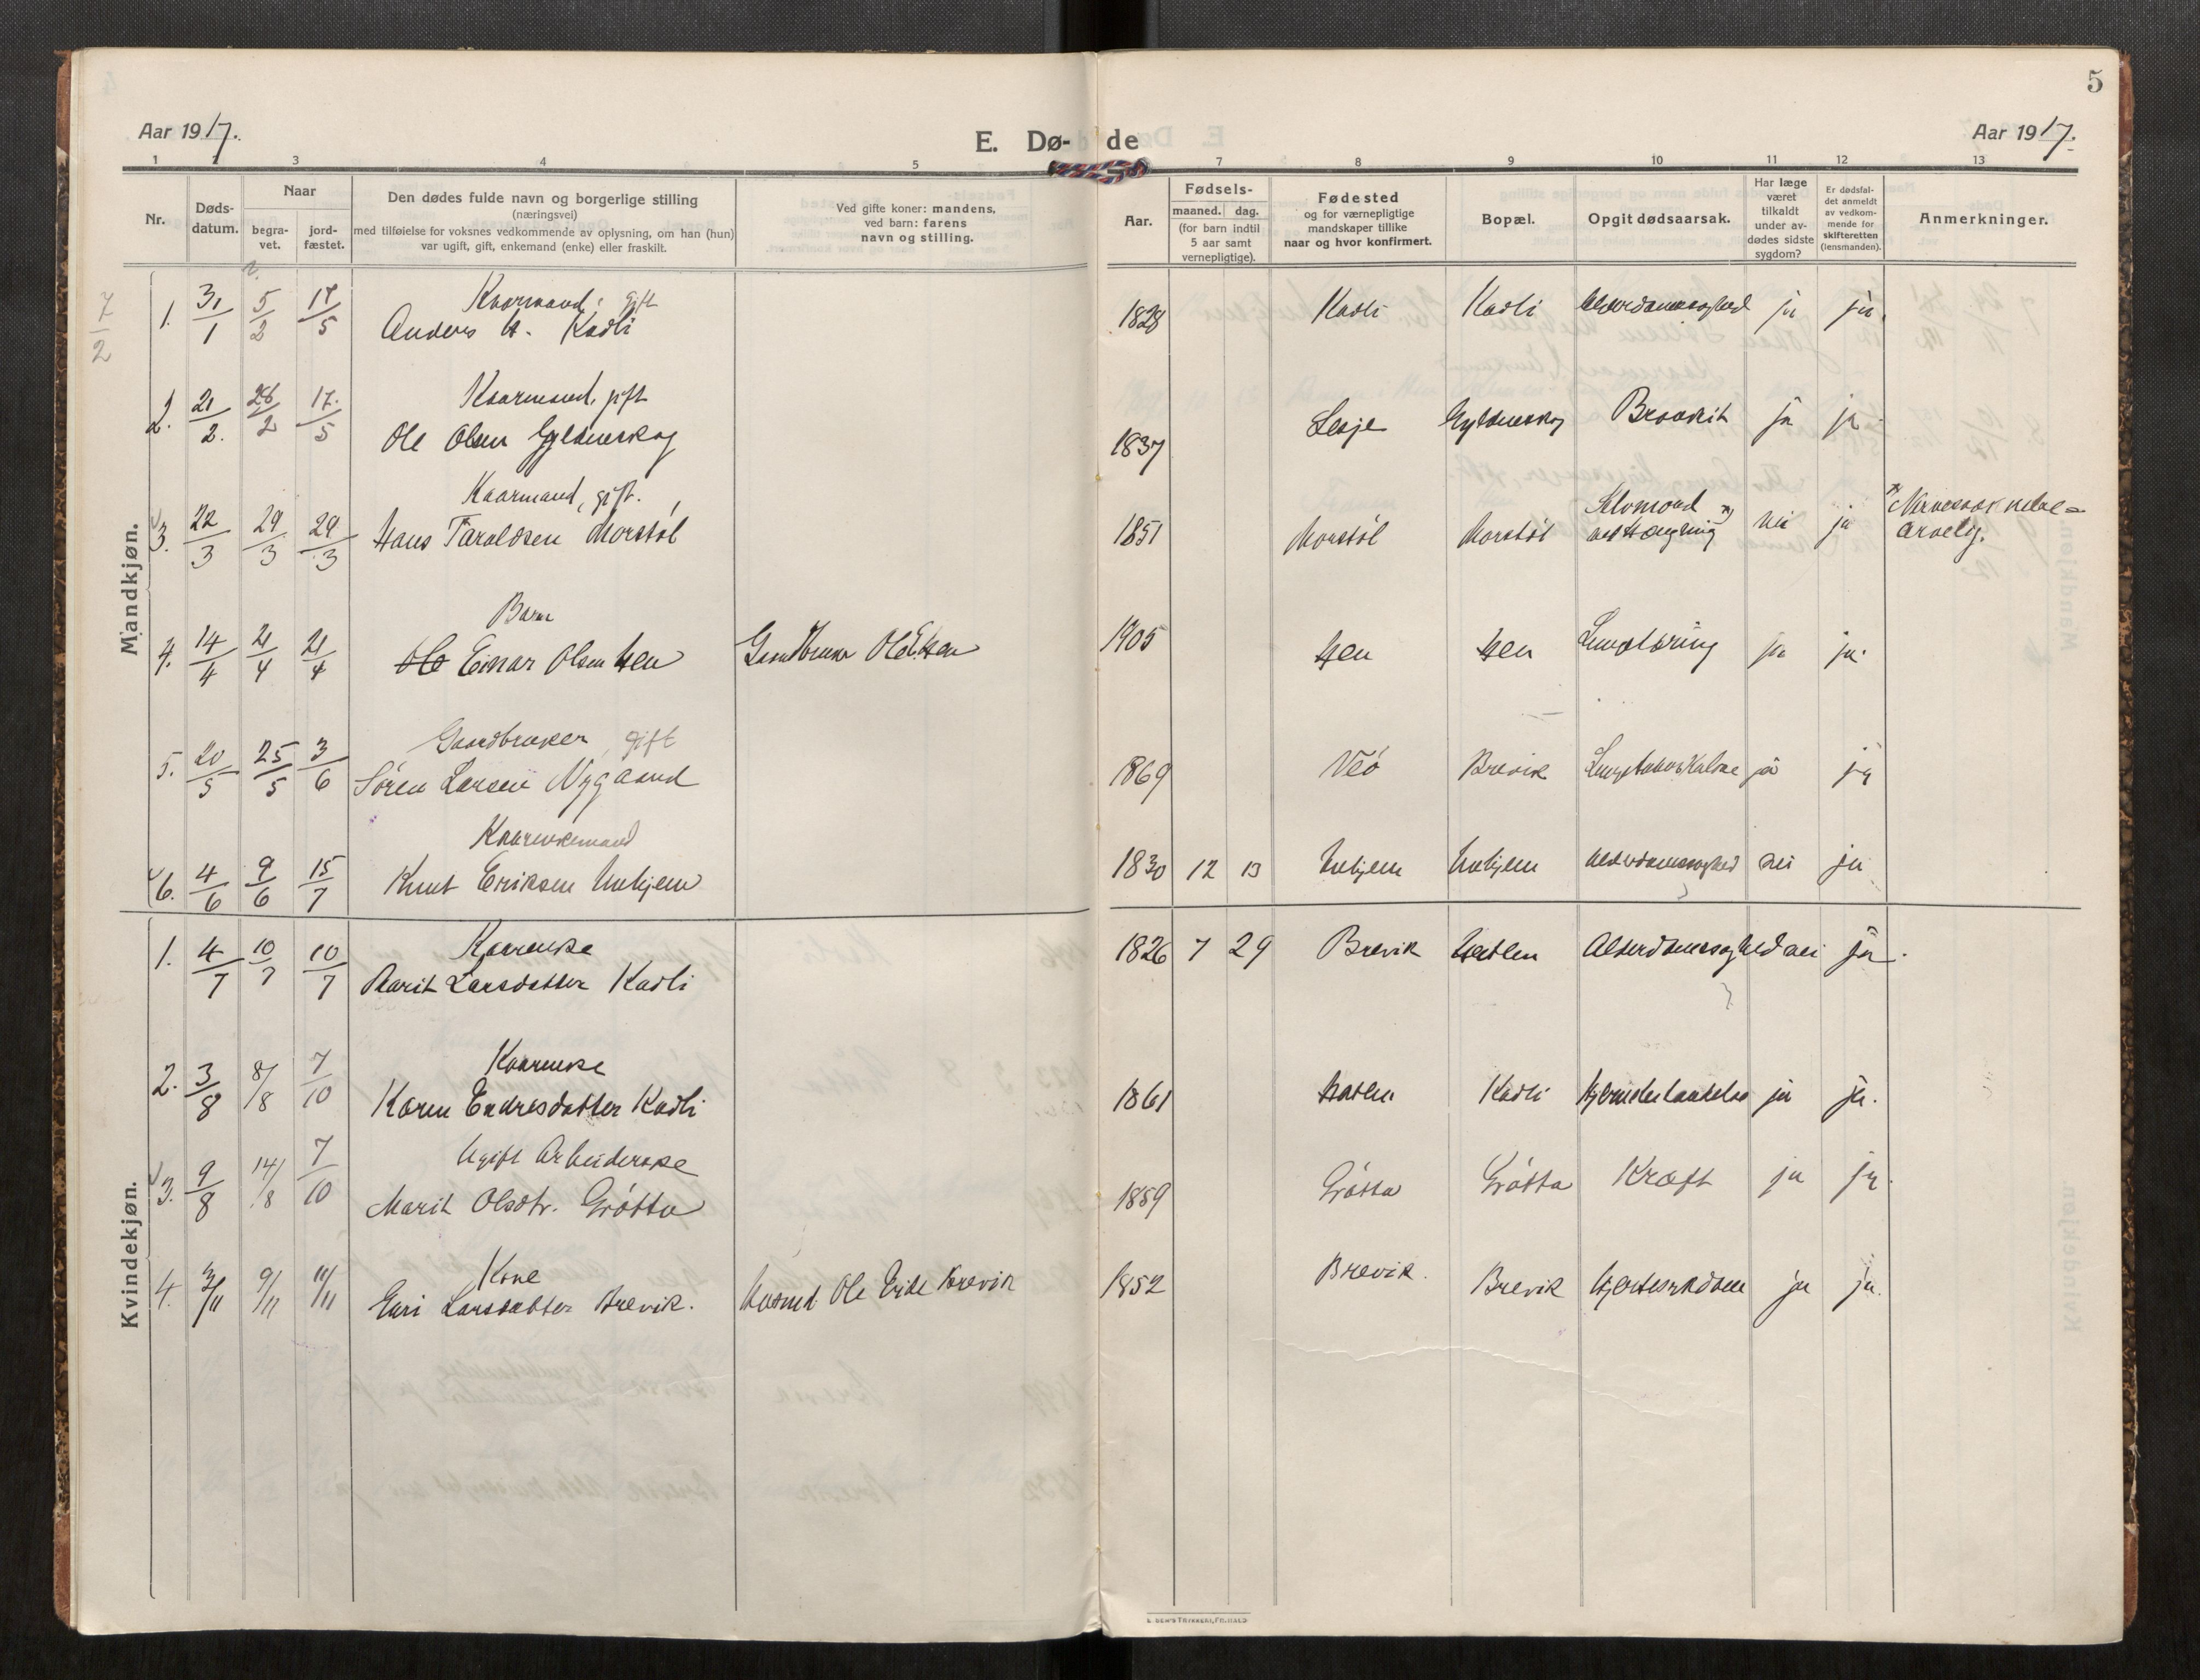 5
Aar 1917.
E. Dø-de
Aar 1917.
1 2 3 4 5 7 8 9 10 11 12 13
Nr.
Døds-
datum.
Naar
begra-
vet.
jord-
fæstet.
Den dødes fulde navn og borgerlige stilling
(næringsvei)
med tilføielse for voksnes vedkommende av oplysning, om han (hun)
var ugift, gift, enkemand (enke) eller fraskilt.
Ved gifte koner: mandens,
ved barn: farens
navn og stilling.
Aar.
Fødsels-
maaned. dag.
(for barn indtil
5 aar samt
vernepligtige).
Fødested
og for værnepligtige
mandskaper tillike
naar og hvor konfirmert.
Bopæl.
Opgit dødsaarsak.
Har læge
været
tilkaldt
under av-
dødes sidste
sygdom?
Er dødsfal-
det anmeldt
av vedkom-
mende for
skifteretten
(lensmanden).
Anmerkninger.
Mandkjøn.
7/2
Kaarmand, gift
1. 31/1 5/2 17/5 Anders A. Kadli 1828 Kadli Kadli Alderdomssvaghed ja ja.
Kaarmand, gift
2. 21/2. 26/2 17./5 Ole Olsen Gyldenskog 1837 Lesje Gyldenskog Bronkit ja ja.
Kaarmand, gift.
3. 22/3 29/3 29/3 Hans Taraldsen Morstøl 1851 Morstøl Morstøl Selvmord *)
ved Hængning nei ja
arvelig.
Barn
4. 14/4 21/4 21/4 Ole Einar Olsen Hen Gaardbruker Ole E. Hen 1905 Hen Hen ja ja.
Gaardbruker, gift
5. 20/5 25/5 3/6 Søren Larsen Nygaard 1869 Veö Brevik Lungetuberkulose ja ja
Kaarenkemand
6. 4/6 9/6 15/7 Knut Eriksen Unhjem 1830 12 13 Unhjem Unhjem Alderdomssvaghed nei ja
Kvindekjøn.
Kaarenke
1. 4/7 10/7 10/7 Marit Larsdatter Kadli 1826 7 29 Brevik Alderdomssvaghed nei ja.
Kaarenke
2. 3/8 8/8 7/10 Karen Endresdatter Kadli 1861 Kadli ja ja.
Ugift Arbeiderske
3. 9/8 14/8 7/10 Marit Olsdtr. Grötta 1859 Grötta Grötta Kræft ja ja.
Kone
4. 3/11 9/11 11/11 Guri Larsdatter Brevik. Ole Brevik 1852 Brevik. Brevik Hjertesykdom ja ja.
E. SEM'S TRYKKERI, FR.HALD